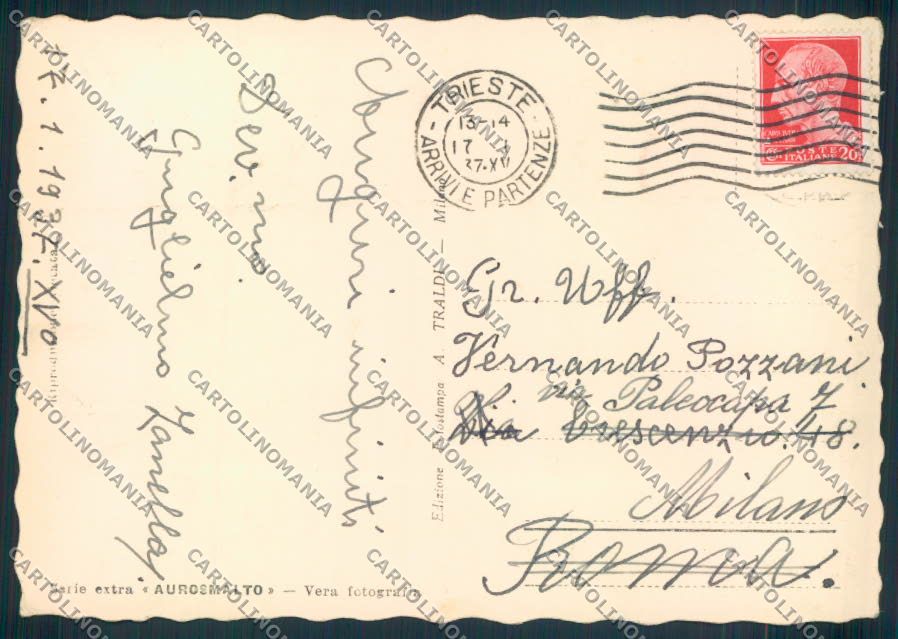 17. 1. 1937. XVo
Auguri infiniti
Dev.mo
Guglielmo
TRIESTE
13-14
17 1
37-XV
ARRIVI E PARTENZE
POSTE
ITALIANE 20
Gr. Uff.
Fernando Pozzani
via Paleocapa 7
Via Crescenzio. 48.
Milano
Roma.
Edizione Fotostampa A. TRALDI — Milano
Riproduzione vietata
Serie extra « AUROSMALTO » — Vera fotografia
CARTOLINOMANIA